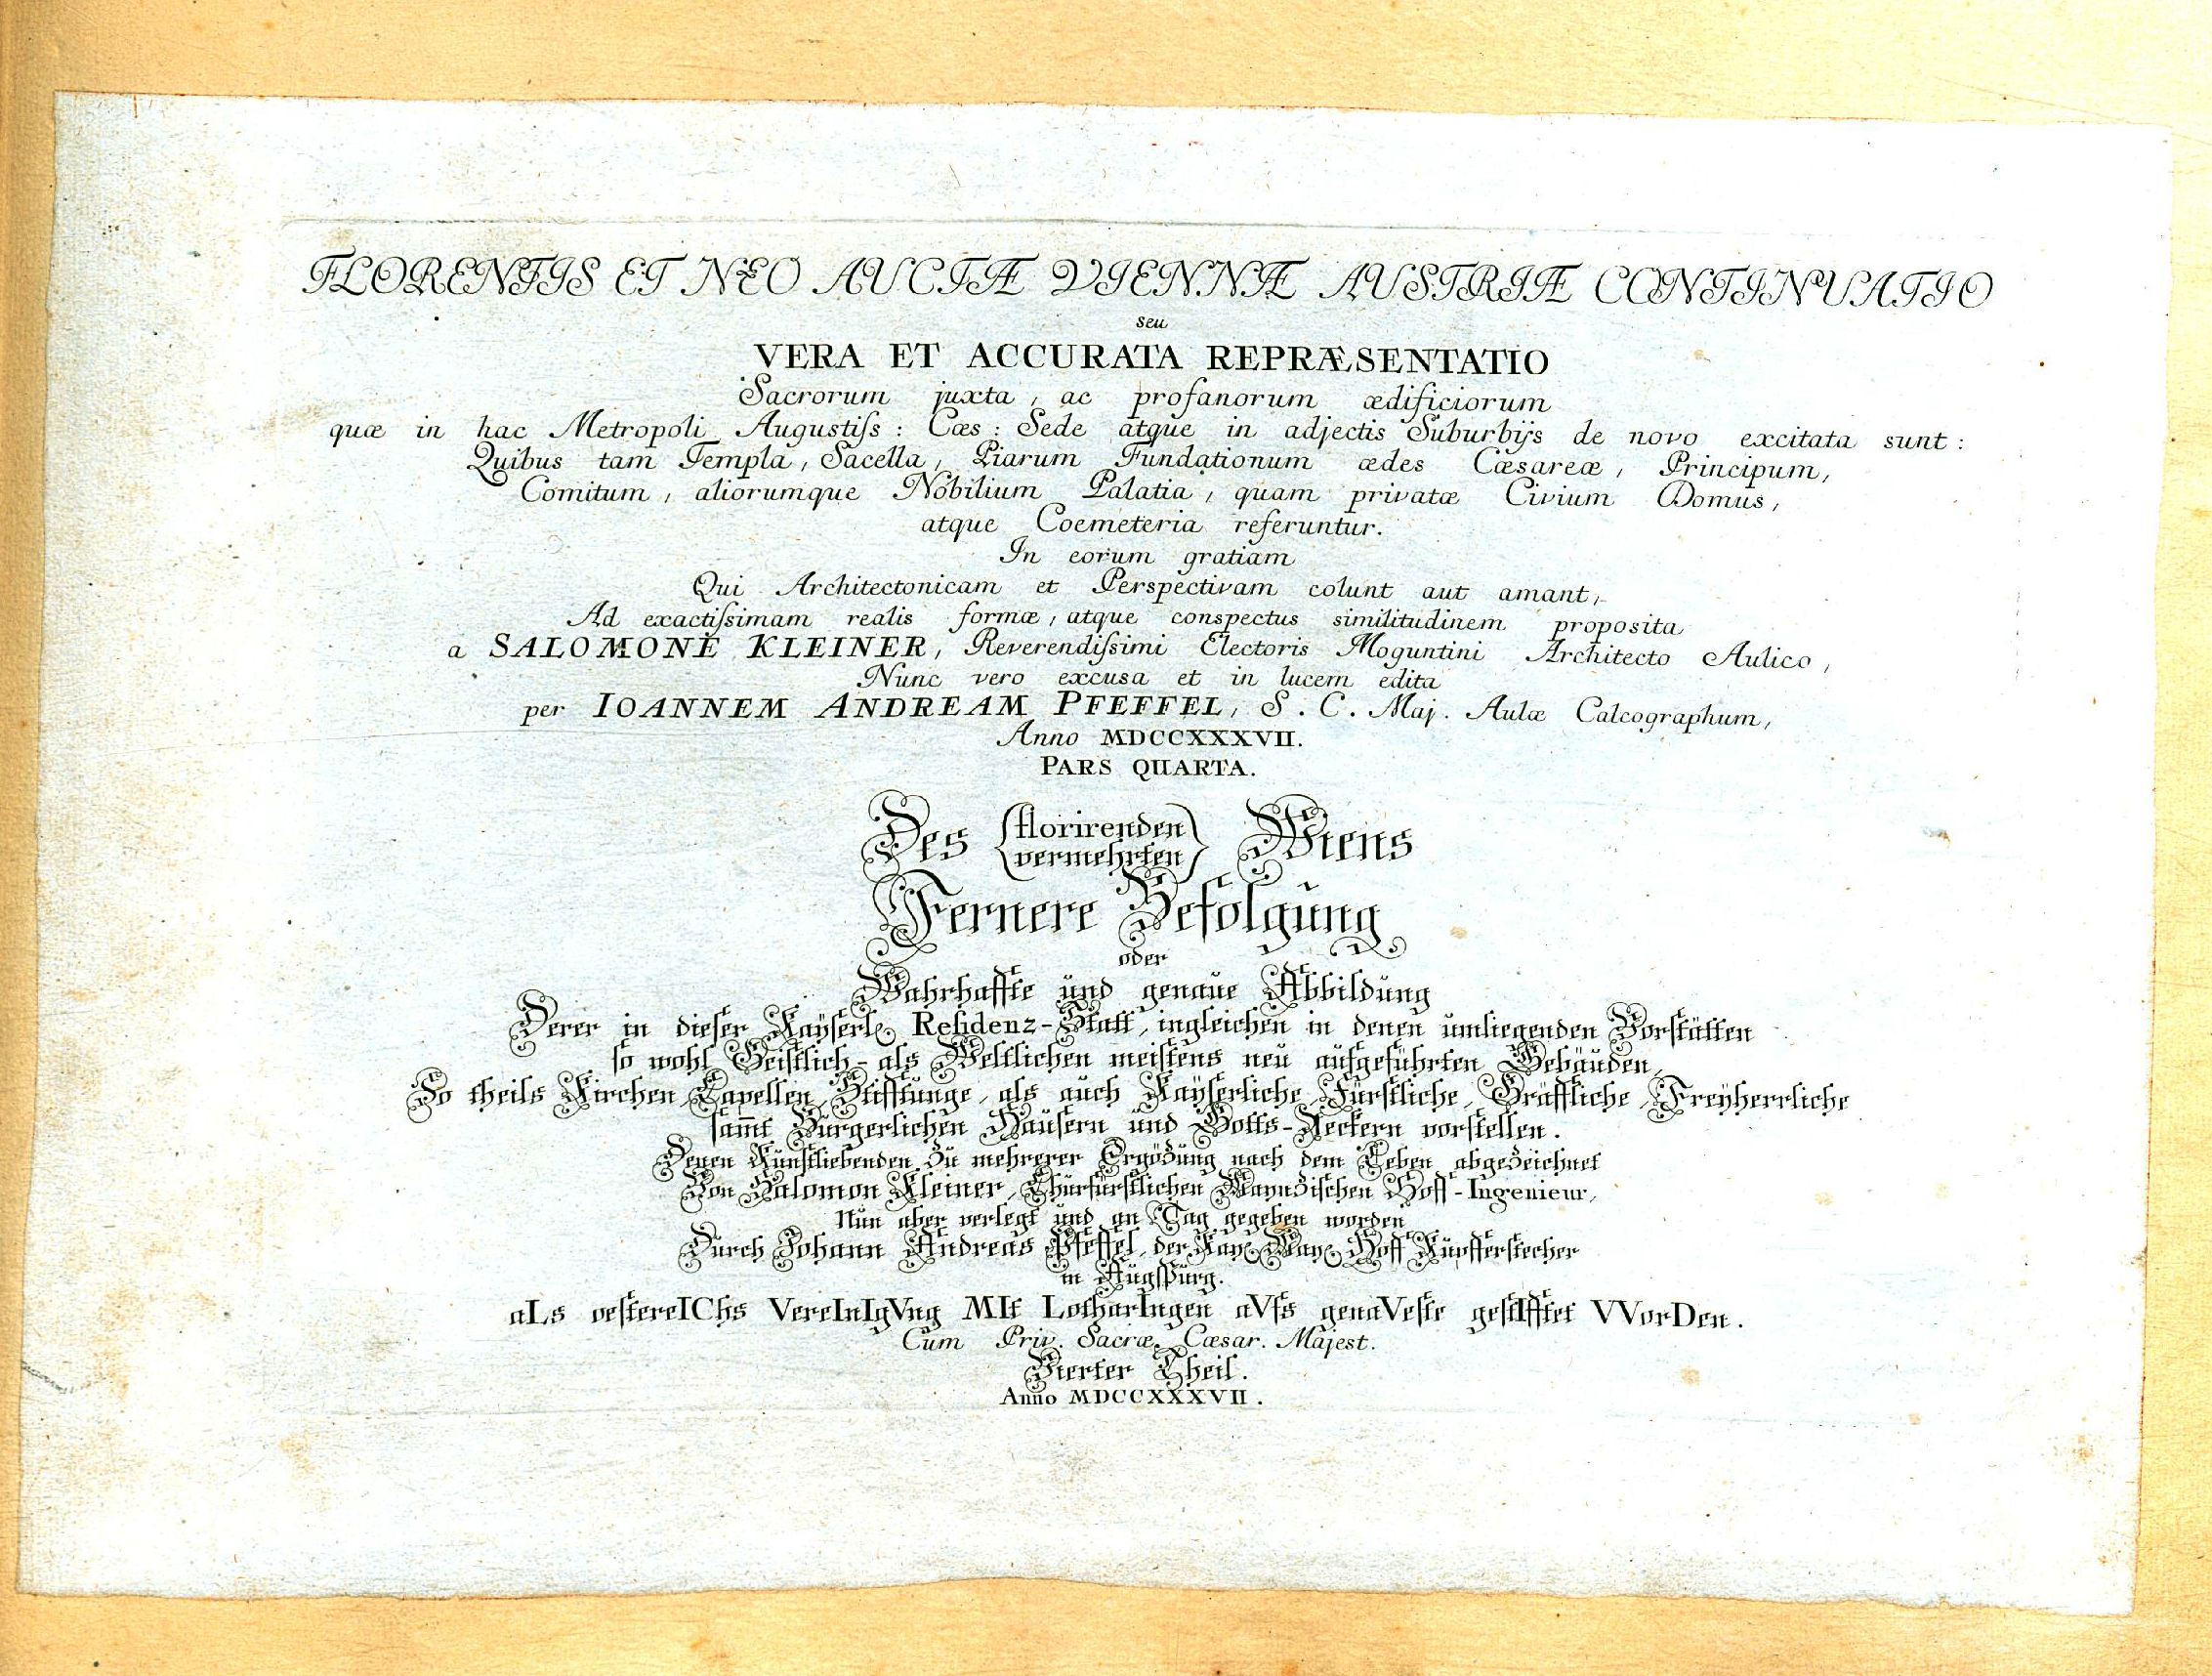 FLORENTIS ET NEO AUCTÆ VIENNÆ AUSTRIÆ CONTINUATIO
seu
VERA ET ACCURATA REPRÆSENTATIO
Sacrorum juxta, ac profanorum ædificiorum
quæ in hac Metropoli Augustiſs: Cæs: Sede atque in adjectis Suburbijs de novo excitata sunt:
Quibus tam Templa, Sacella, Piarum Fundationum ædes Cæsareæ, Principum,
Comitum, aliorumque Nobilium Palatia, quam privatæ Civium Domus,
atque Coemeteria referuntur.
In eorum gratiam
Qui Architectonicam et Perspectivam colunt aut amant,
Ad exactiſsimam realis formæ, atque conspectus similitudinem proposita
a SALOMONE KLEINER, Reverendiſsimi Electoris Moguntini Architecto Aulico,
Nunc vero excusa et in lucem edita
per IOANNEM ANDREAM PFEFFEL, S. C. Maj. Aulæ Calcographum,
Anno MDCCXXXVII.
PARS QUARTA.
Des {florirenden vermehrten} Wiens
Fernere Befolgung
oder
Wahrhaffte und genaue Abbildung
Derer in dieser Kayserl. Residenz-Statt, ingleichen in denen umliegenden Vorstätten
so wohl Geistlich- als Weltlichen meistens neu aufgeführten Gebäuden,
So theils Kirchen, Capellen, Stifftunge, als auch Kayserliche, Fürstliche, Gräffliche, Freyherrliche
sam̅t Burgerlichen Häusern und Gotts-Aeckern vorstellen.
Denen Kunstliebenden zu mehrerer Ergözung nach dem Leben abgezeichnet
Von Salomon Kleiner, Churfürstlichen Maynzischen Hoff-Ingenieur,
Nun aber verlegt und an Tag gegeben worden
Durch Johann Andreas Pfeffel, der Kay. May. Hoff Kupfferstecher
in Augspurg.
aLs oestereIChs VereInIgVng MIt LotharIngen aVfs genaVeste gestIfftet VVorDen.
Cum Priv. Sacræ Cæsar. Majest.
Vierter Theil.
Anno MDCCXXXVII.